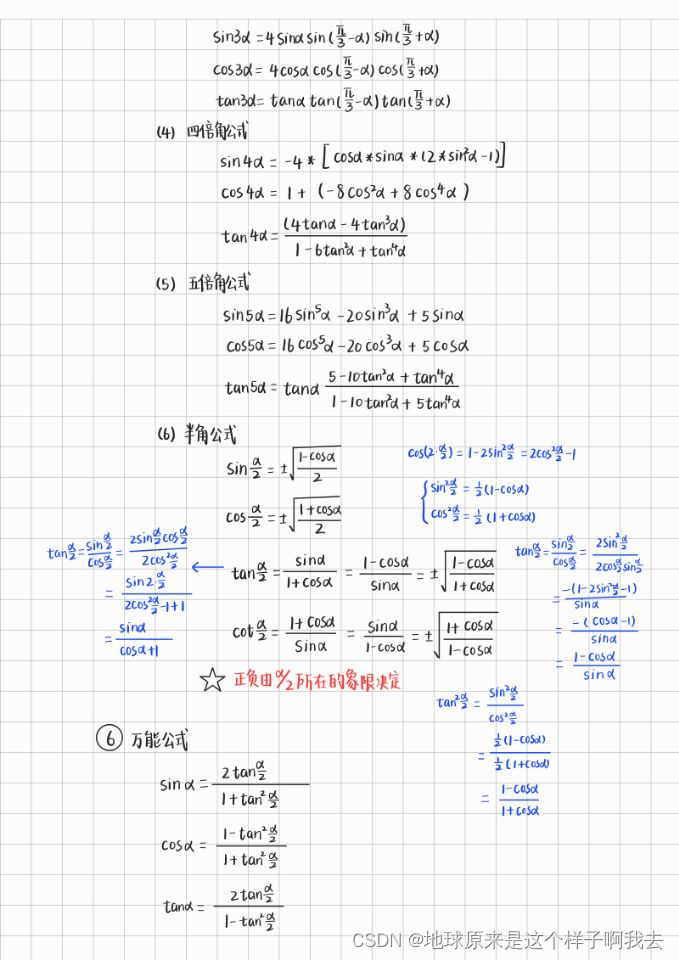 sin3α = 4sinα sin(π/3-α) sin(π/3+α)
cos3α = 4cosα cos(π/3-α) cos(π/3+α)
tan3α = tanα tan(π/3-α) tan(π/3+α)
(4) 四倍角公式
sin4α = -4*[cosα*sinα*(2*sin²α-1)]
cos4α = 1+(-8cos²α+8cos⁴α)
tan4α = (4tanα-4tan³α)/(1-6tan²α+tan⁴α)
(5) 五倍角公式
sin5α = 16sin⁵α-20sin³α+5sinα
cos5α = 16cos⁵α-20cos³α+5cosα
tan5α = tanα (5-10tan²α+tan⁴α)/(1-10tan²α+5tan⁴α)
(6) 半角公式
sin α/2 = ±√((1-cosα)/2)
cos α/2 = ±√((1+cosα)/2)
tan α/2 = sinα/(1+cosα) = (1-cosα)/sinα = ±√((1-cosα)/(1+cosα))
cot α/2 = (1+cosα)/sinα = sinα/(1-cosα) = ±√((1+cosα)/(1-cosα))
☆ 正负由α/2所在的象限决定
cos(2·α/2) = 1-2sin²α/2 = 2cos²α/2-1
{ sin²α/2 = ½(1-cosα)
cos²α/2 = ½(1+cosα)
tan α/2 = (sin α/2)/(cos α/2) = (2sin α/2 cos α/2)/(2cos²α/2)
= (sin2·α/2)/(2cos²α/2-1+1)
= sinα/(cosα+1)
←
tan α/2 = (sin α/2)/(cos α/2) = (2sin²α/2)/(2cos α/2 sin α/2)
= -(1-2sin²α/2-1)/sinα
= -(cosα-1)/sinα
= (1-cosα)/sinα
tan²α/2 = (sin²α/2)/(cos²α/2)
= ½(1-cosα)/½(1+cosα)
= (1-cosα)/(1+cosα)
⑥ 万能公式
sinα = (2tan α/2)/(1+tan²α/2)
cosα = (1-tan²α/2)/(1+tan²α/2)
tanα = (2tan α/2)/(1-tan²α/2)
CSDN @地球原来是这个样子啊我去